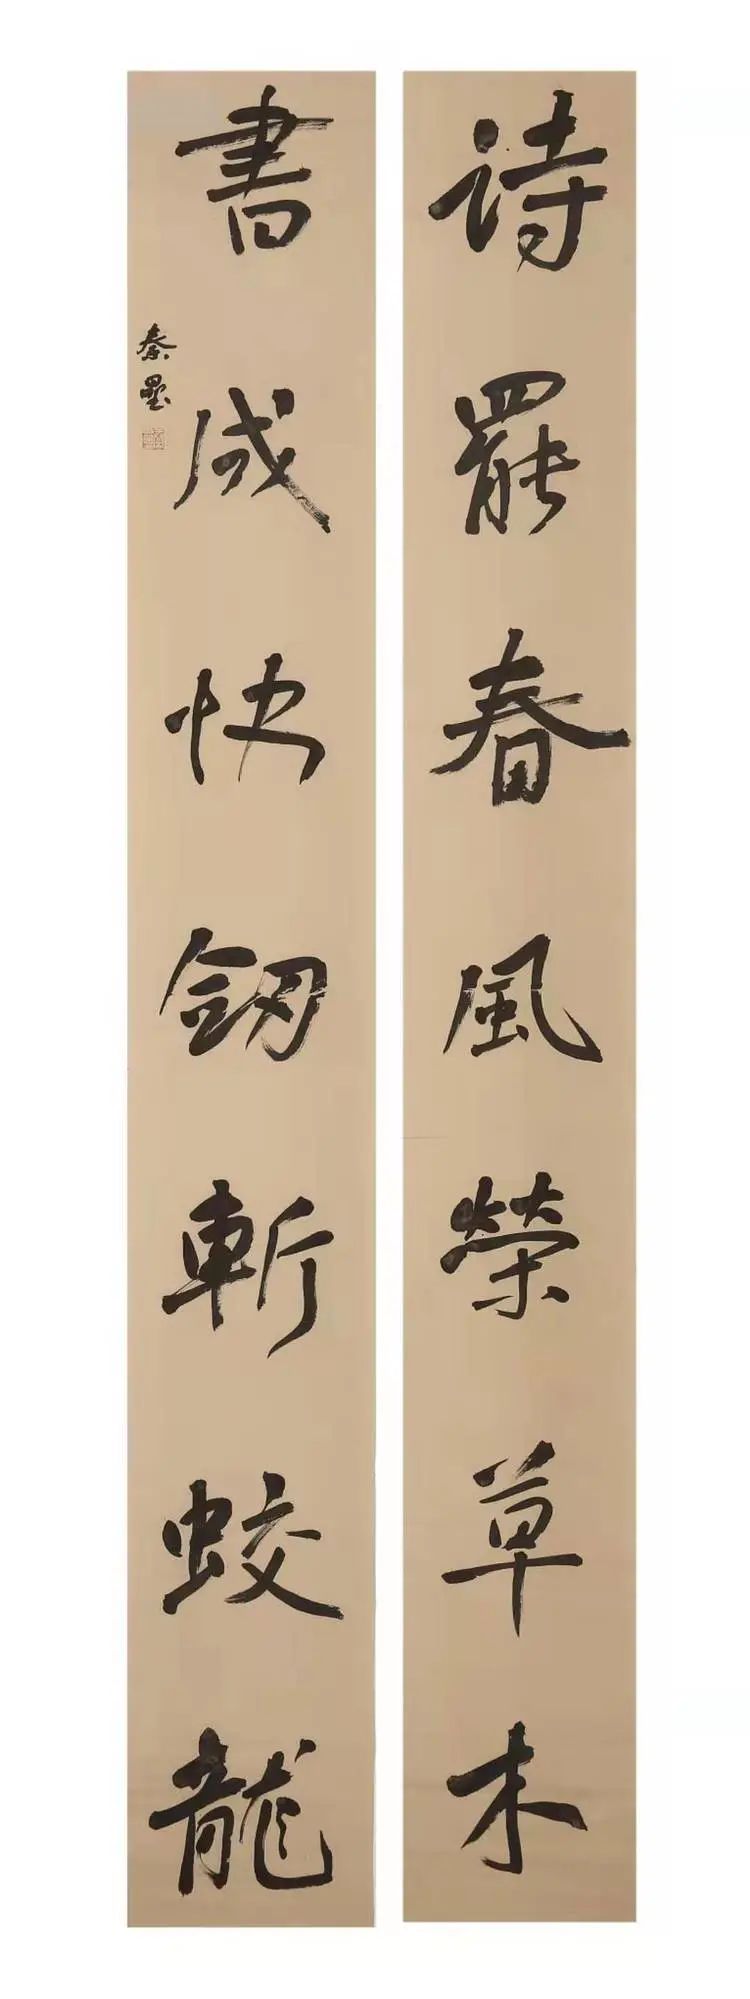 詩罷春風榮草木
書成快劒斬蛟龍
秦咢生